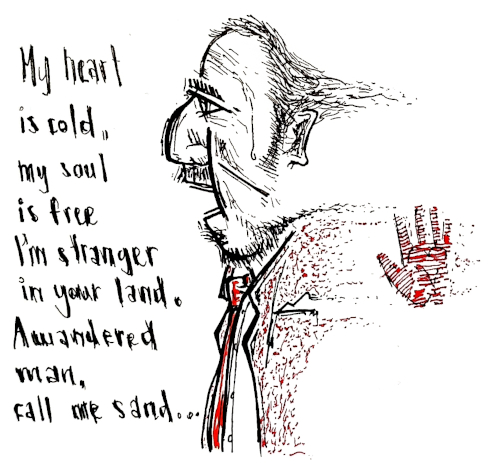 My heart
is cold,
my soul
is free
I'm stranger
in your land.
A wandered
man,
call me sand...